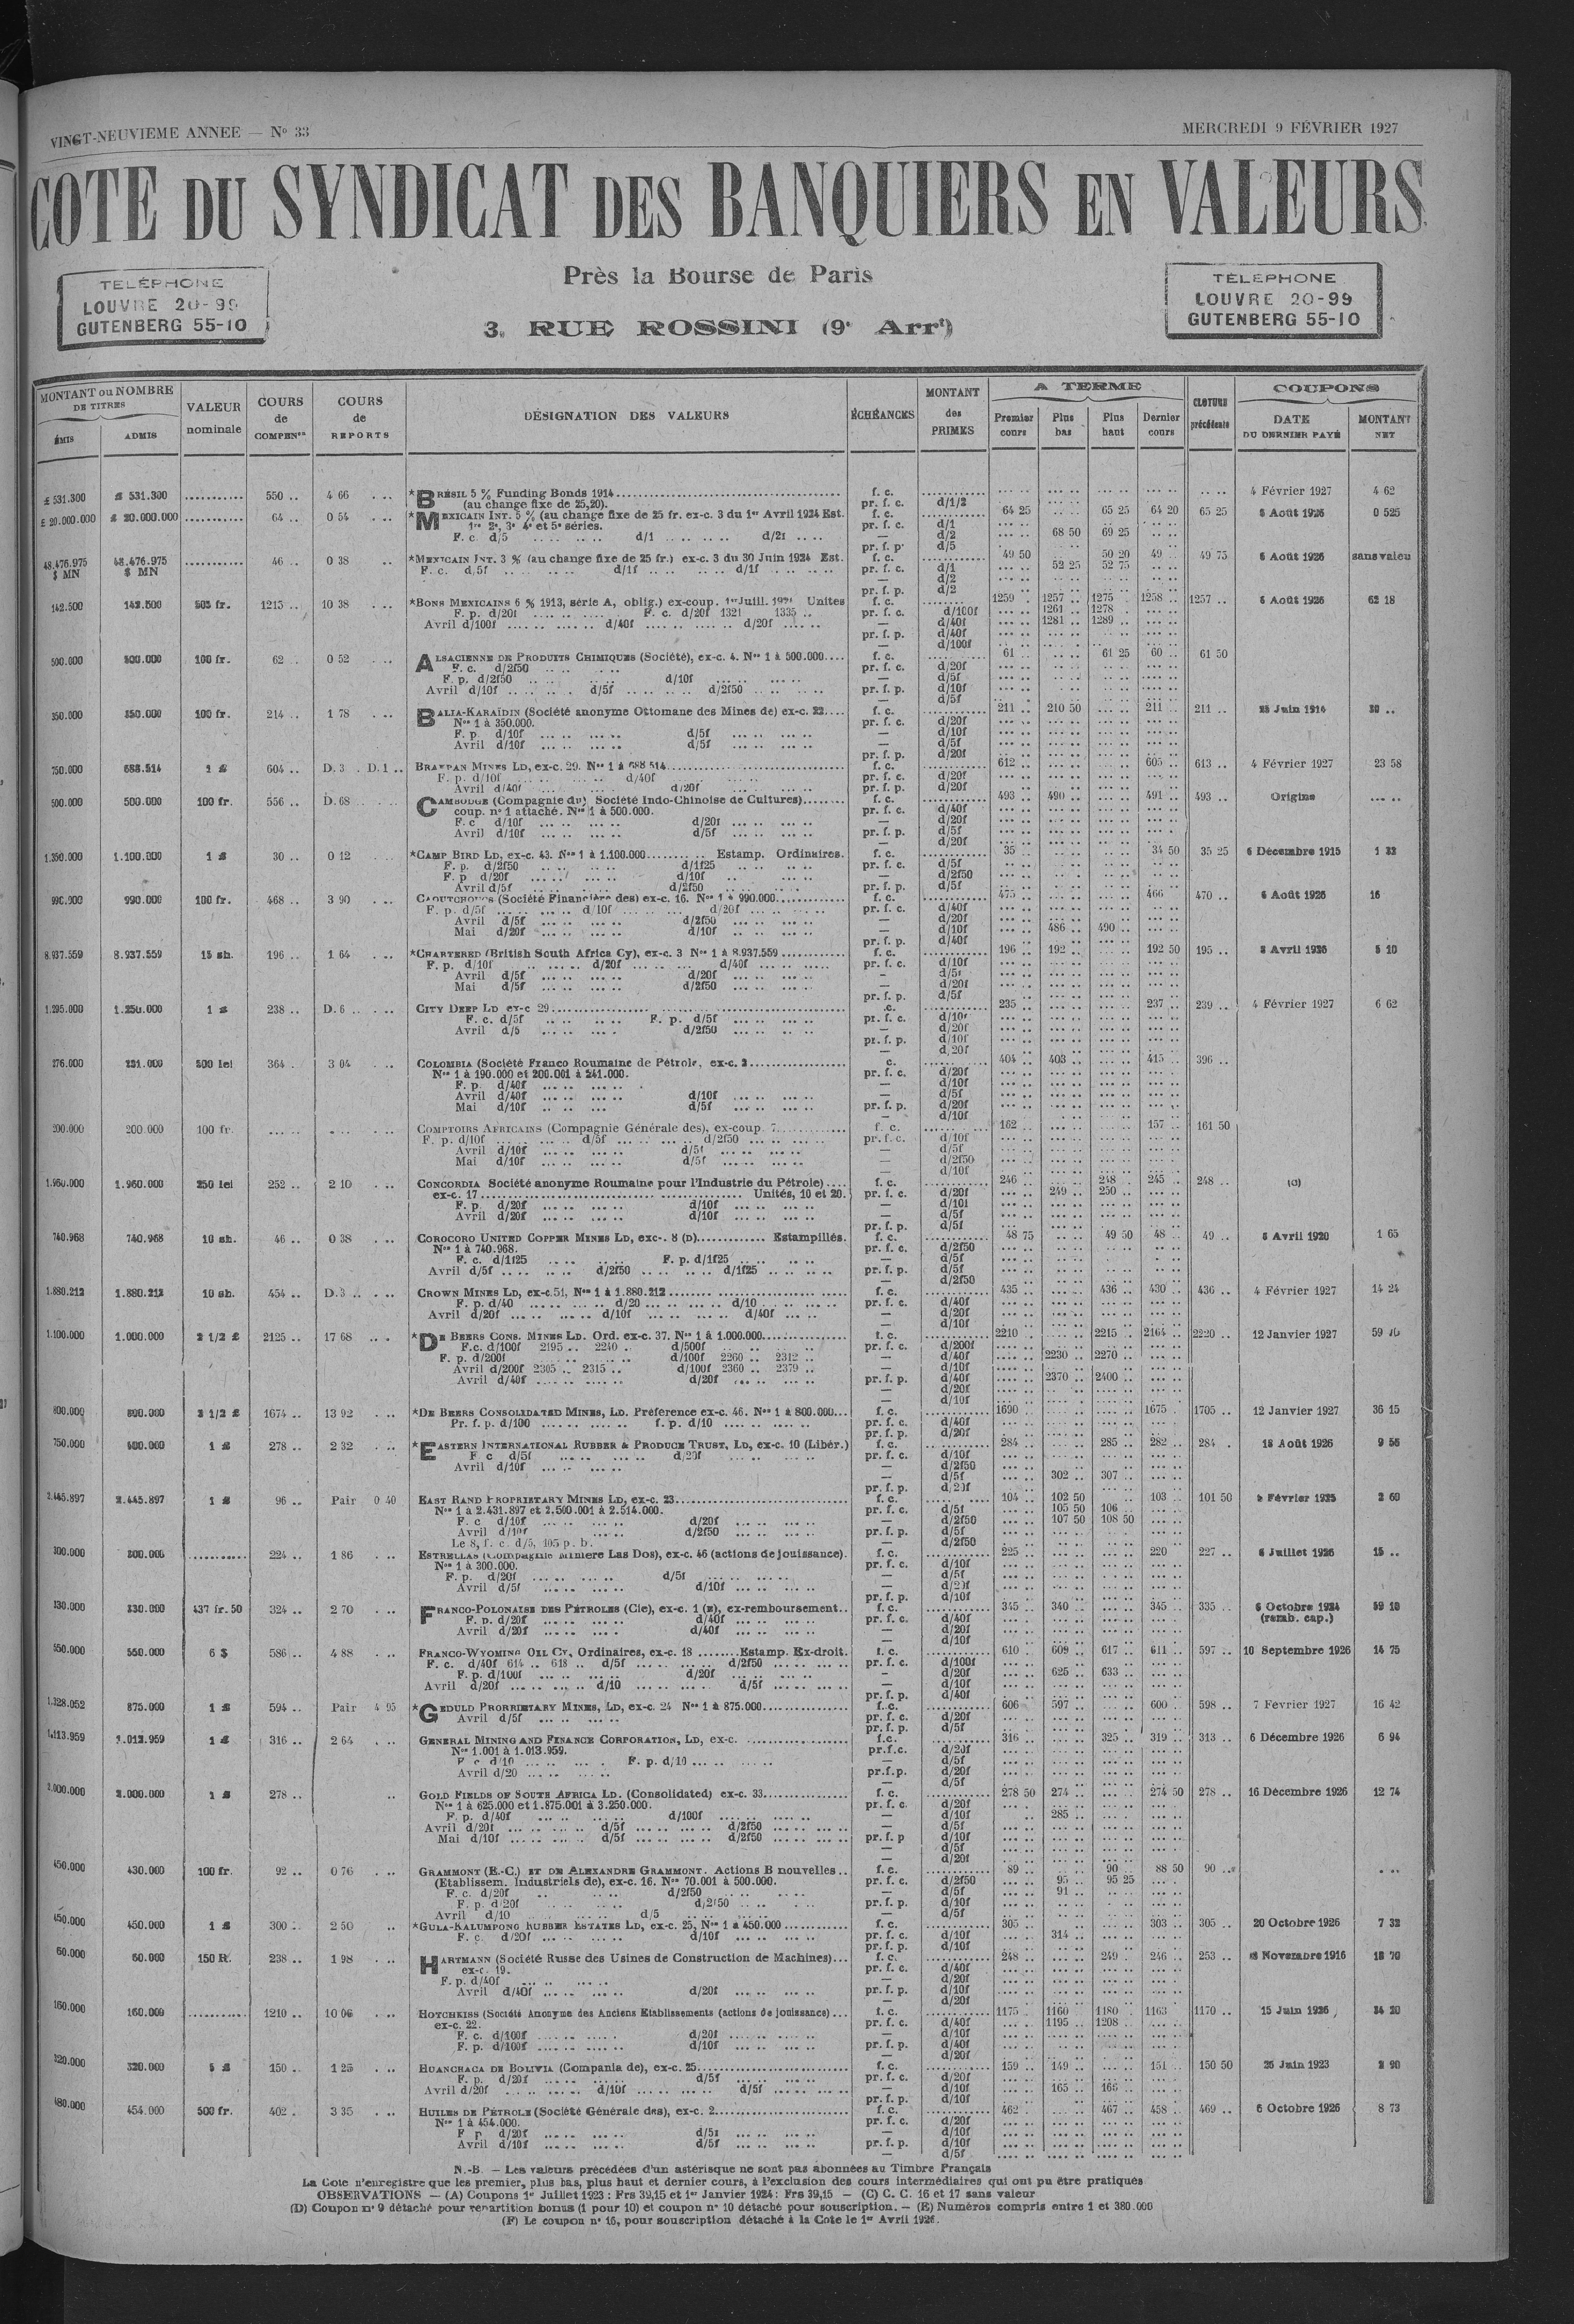 VINGT-NEUVIEME ANNEE — No 33
MERCREDI 9 FÉVRIER 1927
COTE DU SYNDICAT DES BANQUIERS EN VALEURS
Près la Bourse de Paris
3, RUE ROSSINI (9e Arrt)
TELEPHONE
LOUVRE 20-99
GUTENBERG 55-10
TELEPHONE
LOUVRE 20-99
GUTENBERG 55-10
MONTANT ou NOMBRE DE TITRES
ÉMIS ADMIS
VALEUR nominale
COURS de COMPENon
COURS de REPORTS
DÉSIGNATION DES VALEURS
ÉCHÉANCES
MONTANT des PRIMES
A TERME
Premier cours
Plus bas
Plus haut
Dernier cours
CLOTURE précédente
COUPONS
DATE DU DERNIER PAYÉ
MONTANT NET
£ 531.300 £ 531.300 550 .. 4 66 *BRÉSIL 5 % Funding Bonds 1914 f. c. 4 Février 1927 4 62
(au change fixe de 25,20). pr. f. c. d/1/2
£ 20.000.000 £ 20.000.000 64 .. 0 54 *MEXICAIN INT. 5 % (au change fixe de 25 fr. ex-c. 3 du 1er Avril 1924 Est. f. c. 64 25 65 25 64 20 65 25 6 Août 1926 0 525
1re 2e, 3e 4e et 5e séries. pr. f. c. d/1
F. c. d/5 d/1 d/21 — d/2 68 50 69 25
pr. f. p. d/5
48.476.975 $ MN 48.476.975 $ MN 46 .. 0 38 *MEXICAIN INT. 3 % (au change fixe de 25 fr.) ex-c. 3 du 30 Juin 1924 Est. f. c. 49 50 50 20 49 .. 49 75 6 Août 1926 sans valeu
F. c. d,5f d/1f d/1f pr. f. c. d/1 52 25 52 75
— d/2
pr. f. p. d/2
142.500 142.500 505 fr. 1215 .. 10 38 *BONS MEXICAINS 6 % 1913, série A, oblig.) ex-coup. 1er Juill. Unites f. c. 1259 1257 .. 1275 1258 .. 1257 .. 6 Août 1926 62 18
F. p. d/20f F. c. d/20f 1321 1335 .. pr. f. c. d/100f 1261 1278
Avril d/100f d/40f d/20f — d/40f 1281 .. 1289 ..
pr. f. p. d/40f
— d/100f
500.000 500.000 100 fr. 62 .. 0 52 ALSACIENNE DE PRODUITS CHIMIQUES (Société), ex-c. 4. Nos 1 à 500.000 f. c. 61 61 25 60 .. 61 50
F. c. d/2f50 pr. f. c. d/20f
F. p. d/2f50 d/10f — d/5f
Avril d/10f d/5f d/2f50 pr. f. p. d/10f
— d/5f
350.000 350.000 100 fr. 214 .. 1 78 BALIA-KARAÏDIN (Société anonyme Ottomane des Mines de) ex-c. 22 f. c. 211 .. 210 50 211 .. 211 .. 25 Juin 1914 20 ..
Nos 1 à 350.000. pr. f. c. d/20f
F. p. d/10f d/5f — d/10f
Avril d/10f d/5f — d/5f
pr. f. p. d/20f
750.000 688.514 1 £ 604 .. D. 3 . D. 1 .. BRAKPAN MINES LD, ex-c. 29. Nos 1 à 688 514 f. c. 612 .. 605 .. 613 .. 4 Février 1927 23 58
F. p. d/10f d/40f pr. f. c. d/20f
Avril d/40f d/20f pr. f. p. d/20f
500.000 500.000 100 fr. 556 .. D. 68 CAMBODGE (Compagnie du) Société Indo-Chinoise de Cultures) f. c. 493 .. 490 .. 491 .. 493 .. Origine
coup. no 1 attaché. Nos 1 à 500.000. pr. f. c. d/40f
F. c d/10f d/20f — d/20f
Avril d/10f d/5f pr. f. p. d/5f
— d/20f
1.350.000 1.100.000 1 £ 30 .. 0 12 *CAMP BIRD LD, ex-c. 43. Nos 1 à 1.100.000 Estamp. Ordinaires. f. c. 35 34 50 35 25 6 Décembre 1915 1 32
F. p. d/2f50 d/1f25 pr. f. c. d/5f
F. p d/20f d/10f — d/2f50
Avril d/5f d/2f50 pr. f. p. d/5f
990.000 990.000 100 fr. 468 .. 3 90 CAOUTCHOUCS (Société Financière des) ex-c. 16. Nos 1 à 990.000 f. c. 475 466 470 .. 6 Août 1926 16
F. p. d/5f d/10f d/20f pr. f. c. d/40f
Avril d/5f d/2f50 — d/20f
Mai d/20f d/10f — d/10f 486 .. 490 ..
pr. f. p. d/40f
8.937.559 8.937.559 15 sh. 196 .. 1 64 *CHARTERED (British South Africa Cy), ex-c. 3 Nos 1 à 8.937.559 f. c. 196 .. 192 .. 192 50 195 .. 3 Avril 1926 5 10
F. p. d/10f d/20f d/40f pr. f. c. d/10f
Avril d/5f d/20f — d/5f
Mai d/5f d/2f50 — d/20f
pr. f. p. d/5f
1.295.000 1.250.000 1 £ 238 .. D. 6 .. CITY DEEP LD ex-c 29 .c. 235 237 .. 239 .. 4 Février 1927 6 62
F. c. d/5f F. p. d/5f pr. f. c. d/10f
Avril d/5 d/2f50 — d/20f
pr. f. p. d/10f
— d,20f
276.000 231.000 500 lei 364 3 04 COLOMBIA (Société Franco Roumaine de Pétrole, ex-c. 2 c. 404 .. 403 .. 415 .. 396 ..
Nos 1 à 190.000 et 200.001 à 241.000. pr. f. c. d/20f
F. p. d/40f — d/10f
Avril d/40f d/10f — d/5f
Mai d/10f d/5f pr. f. p. d/20f
— d/10f
200.000 200.000 100 fr. COMPTOIRS AFRICAINS (Compagnie Générale des), ex-coup. 7 f. c. 162 157 .. 161 50
F. p. d/10f d/5f d/2f50 pr. f. c. d/10f
Avril d/10f d/5f — d/5f
Mai d/10f d/5f — d/2f50
— d/10f
1.960.000 1.960.000 250 lei 252 .. 2 10 CONCORDIA Société anonyme Roumaine pour l'Industrie du Pétrole) f. c. 246 248 .. 245 .. 248 .. (C)
ex-c. 17 Unités, 10 et 20. pr. f. c. d/20f 249 .. 250 ..
F. p. d/20f d/10f — d/10f
Avril d/20f d/10f — d/5f
pr. f. p. d/5f
740.968 740.968 10 sh. 46 .. 0 38 COROCORO UNITED COPPER MINES LD, exc-. 8 (D) Estampillés. f. c. 48 75 49 50 48 .. 49 .. 6 Avril 1920 1 65
Nos 1 à 740.968. pr. f. c. d/2f50
F. c. d/1f25 F. p. d/1f25 — d/5f
Avril d/5f d/2f50 d/1f25 pr. f. p. d/5f
— d/2f50
1.880.212 1.880.212 10 sh. 454 .. D.3 .. CROWN MINES LD, ex-c.51, Nos 1 à 1.880.212 f. c. 435 436 .. 430 .. 436 .. 4 Février 1927 14 24
F. p. d/40 d/20 d/10 pr. f. c. d/40f
Avril d/20f d/10f d/40f — d/20f
— d/10f
1.100.000 1.000.000 2 1/2 £ 2125 .. 17 68 *DE BEERS CONS. MINES LD. Ord. ex-c. 37. Nos 1 à 1.000.000 f. c. 2210 2215 2164 .. 2220 .. 12 Janvier 1927 59
F.c. d/100f 2195 .. 2240 .. d/500f pr. f. c. d/200f
F. p. d/200f d/100f 2260 .. 2312 .. — d/40f 2230 .. 2270 ..
Avril d/200f 2305 .. 2315 .. d/100f 2360 .. 2379 .. — d/10f
Avril d/40f d/20f pr. f. p. d/40f 2370 2400
— d/20f
— d/10f
800.000 800.000 2 1/2 £ 1674 .. 13 92 *DE BEERS CONSOLIDATED MINES, LD. Préférence ex-c. 46. Nos 1 à 800.000 f. c. 1690 1675 1705 .. 12 Janvier 1927 36 15
Pr. f. p. d/100 f. p. d/10 pr. f. c. d/40f
pr. f. p. d/20f
750.000 400.000 1 £ 278 .. 2 32 *EASTERN INTERNATIONAL RUBBER & PRODUCE TRUST, LD, ex-c. 10 (Libér.) f. c. 284 285 .. 282 .. 284 . 18 Août 1926 9 56
F c d/5f d/20f pr. f. c. d/10f
Avril d/10f — d/2f50
— d/5f 302 .. 307 ..
pr. f. p. d,20f
2.445.897 2.445.897 1 £ 96 .. Pair 0 40 EAST RAND PROPRIETARY MINES LD, ex-c. 23 f. c. 104 .. 102 50 103 .. 101 50 Février 1925 2 60
Nos 1 à 2.431.897 et 2.500.001 à 2.514.000. pr. f. c. d/5f 105 50 106
F. c d/10f d/20f — d/2f50 107 50 108 50
Avril d/10f d/2f50 pr. f. p. d/5f
Le 8, f. c. d/5, 105 p. b. — d/2f50
300.000 300.000 224 .. 1 86 ESTRELLAS (Compagnie Minière Las Dos), ex-c. 46 (actions de jouissance). f. c. 225 220 227 .. 6 Juillet 1926 15 ..
Nos 1 à 300.000. pr. f. c. d/10f
F. p. d/20f d/5f — d/5f
Avril d/5f d/10f — d/20f
pr. f. p. d/10f
330.000 330.000 437 fr. 50 324 .. 2 70 FRANCO-POLONAISE DES PÉTROLES (Cie), ex-c. 1 (E), ex-remboursement f. c. 345 340 .. 345 335 .. 6 Octobre 1924 59 10
F. p. d/20f d/40f pr. f. c. d/40f (remb. cap.)
Avril d/20f d/40f — d/20f
— d/10f
550.000 550.000 6 $ 586 .. 4 88 FRANCO-WYOMING OIL Cy, Ordinaires, ex-c. 18 Estamp. Ex-droit. f. c. 610 609 617 .. 611 .. 597 .. 10 Septembre 1926 14 75
F. c. d/40f 614 .. 618 .. d/5f d/2f50 pr. f. c. d/100f
F. p. d/100f d/20f — d/20f 625 .. 633 ..
Avril d/20f d/10 d/5f — d/10f
pr. f. p. d/40f
1.328.052 875.000 1 £ 594 .. Pair 4 95 *GEDULD PRORRIETARY MINES, LD, ex-c. 24 Nos 1 à 875.000 f.c. 606 597 600 .. 598 .. 7 Février 1927 16 42
Avril d/5f pr. f. c. d/20f
pr. f. p. d/5f
1.113.959 1.013.959 1 £ 316 .. 2 64 GENERAL MINING AND FINANCE CORPORATION, LD, ex-c. f.c. 316 325 .. 319 .. 313 .. 6 Décembre 1926 6 94
Nos 1.001 à 1.013.959. pr.f.c. d/20f
F. c d/10 F. p. d/10 — d/5f
Avril d/20 pr.f.p. d/20f
— d/5f
2.000.000 2.000.000 1 £ 278 .. GOLD FIELDS OF SOUTH AFRICA LD. (Consolidated) ex-c. 33 f. c. 278 50 274 .. 274 50 278 .. 16 Décembre 1926 12 74
Nos 1 à 625.000 et 1.875.001 à 3.250.000. pr. f. c. d/20f
F. p. d/40f d/100f — d/10f 285
Avril d/20f d/5f d/2f50 — d/5f
Mai d/10f d/5f d/2f50 pr. f. p d/10f
— d/5f
— d/20f
450.000 430.000 100 fr. 92 .. 0 76 GRAMMONT (E.-C.) ET DE ALEXANDRE GRAMMONT. Actions B nouvelles f. c. 89 90 88 50 90 ..
(Etablissem. Industriels de), ex-c. 16. Nos 70.001 à 500.000. pr. f. c. d/2f50 95 95 25
F. c. d/20f d/2f50 — d/5f 91
F. p. d/20f d/2f50 pr. f. p. d/10f
Avril d/10 d/5 — d/5f
450.000 450.000 1 £ 300 .. 2 50 *GULA-KALUMPONG RUBBER ESTATES LD, ex-c. 25, Nos 1 à 450.000 f. c. 305 303 .. 305 .. 20 Octobre 1926 7 32
F. c. d/20f d/10f pr. f. c. d/10f 314
pr. f. p. d/10f
60.000 60.000 150 R. 238 .. 1 98 HARTMANN (Société Russe des Usines de Construction de Machines) f. c. 248 249 .. 246 .. 253 .. Novembre 1916 18 70
ex-c. 19. pr. f. c. d/40f
F. p. d/40f — d/20f
Avril d/40f d/20f pr. f. p. d/10f
— d/20f
160.000 160.000 1210 .. 10 06 HOTCHKISS (Société Anonyme des Anciens Etablissements (actions de jouissance) f. c. 1175 1160 1180 1163 1170 .. 15 Juin 1926 34 20
ex-c. 22. pr. f. c. d/40f 1195 .. 1208 ..
F. c. d/100f d/20f — d/10f
F. p. d/100f d/10f pr. f. p. d/40f
— d/20f
320.000 320.000 5 £ 150 .. 1 25 HUANCHACA DE BOLIVIA (Compania de), ex-c. 25 f. c. 159 149 .. 151 .. 150 50 25 Juin 1923 2 90
F. p. d/20f d/5f pr. f. c. d/20f
Avril d/20f d/10f d/5f — d/10f 165 .. 166 ..
pr. f. p. d/10f
480.000 454.000 500 fr. 402 . 3 35 HUILES DE PÉTROLE (Société Générale des), ex-c. 2 f. c. 462 467 .. 458 .. 469 .. 6 Octobre 1926 8 73
Nos 1 à 454.000. pr. f. c. d/20f
F p d/20f d/5f — d/10f
Avril d/10f d/5f pr. f. p. d/10f
— d/5f
N.-B. — Les valeurs précédées d'un astérisque ne sont pas abonnées au Timbre Français
La Cote n'enregistre que les premier, plus bas, plus haut et dernier cours, à l'exclusion des cours intermédiaires qui ont pu être pratiqués
OBSERVATIONS — (A) Coupons 1er Juillet 1923 : Frs 39,15 et 1er Janvier 1924 : Frs 39,15 — (C) C. C. 16 et 17 sans valeur
(D) Coupon no 9 détaché pour repartition bonus (1 pour 10) et coupon no 10 détaché pour souscription. — (E) Numéros compris entre 1 et 380.000
(F) Le coupon no 16, pour souscription détaché à la Cote le 1er Avril 1926.